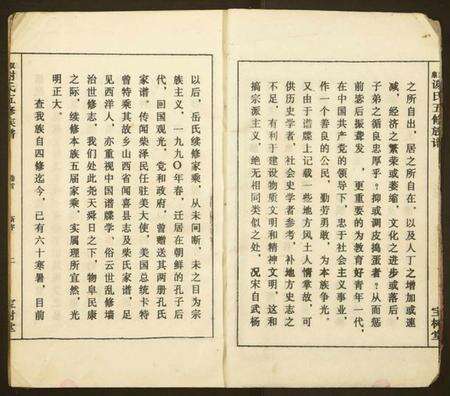 谢氏五修族谱
之所自出，居之所自在，以及人丁之增加或速
减，经济之繁荣或萎缩，文化之进步或落后，
子弟之循良忠厚乎？抑或调皮捣蛋者？从而惩
前毖后振聋发，更重要的为教育好青年一代，
在中国共产党的领导下，忠于社会主义事业，
作一个善良的公民，勤劳勇敢，为本族争光。
又由于谱牒上记载一些地方风土人情掌故，可
供社会学者、社会史学者参考，补地方史志之
不足，有利于建设物质文明和精神文明，这和
搞宗派主义，绝无相同类似之处，况宋自武杨
宝树堂
谢氏五修族谱
以后，岳氏续修家乘，从未间断，未之目为宗
族主义，一九九〇年春，迁居在朝鲜的孔子后
代，回国观光，党和政府，曾赠送其两册孔氏
家谱，传闻柴泽民任驻美大使，美国总统卡特
曾特乘其故乡山西省闻喜县志及柴氏家谱，足
见西洋人，亦重视中国谱牒学，俗云世乱修墙
治世修志，我们处此尧天舜日之下，物阜民康
之际，续修本族五届家乘，实属理所宜然，光
明正大。
查我族自四修迄今，已有六十寒暑，目前
宝树堂